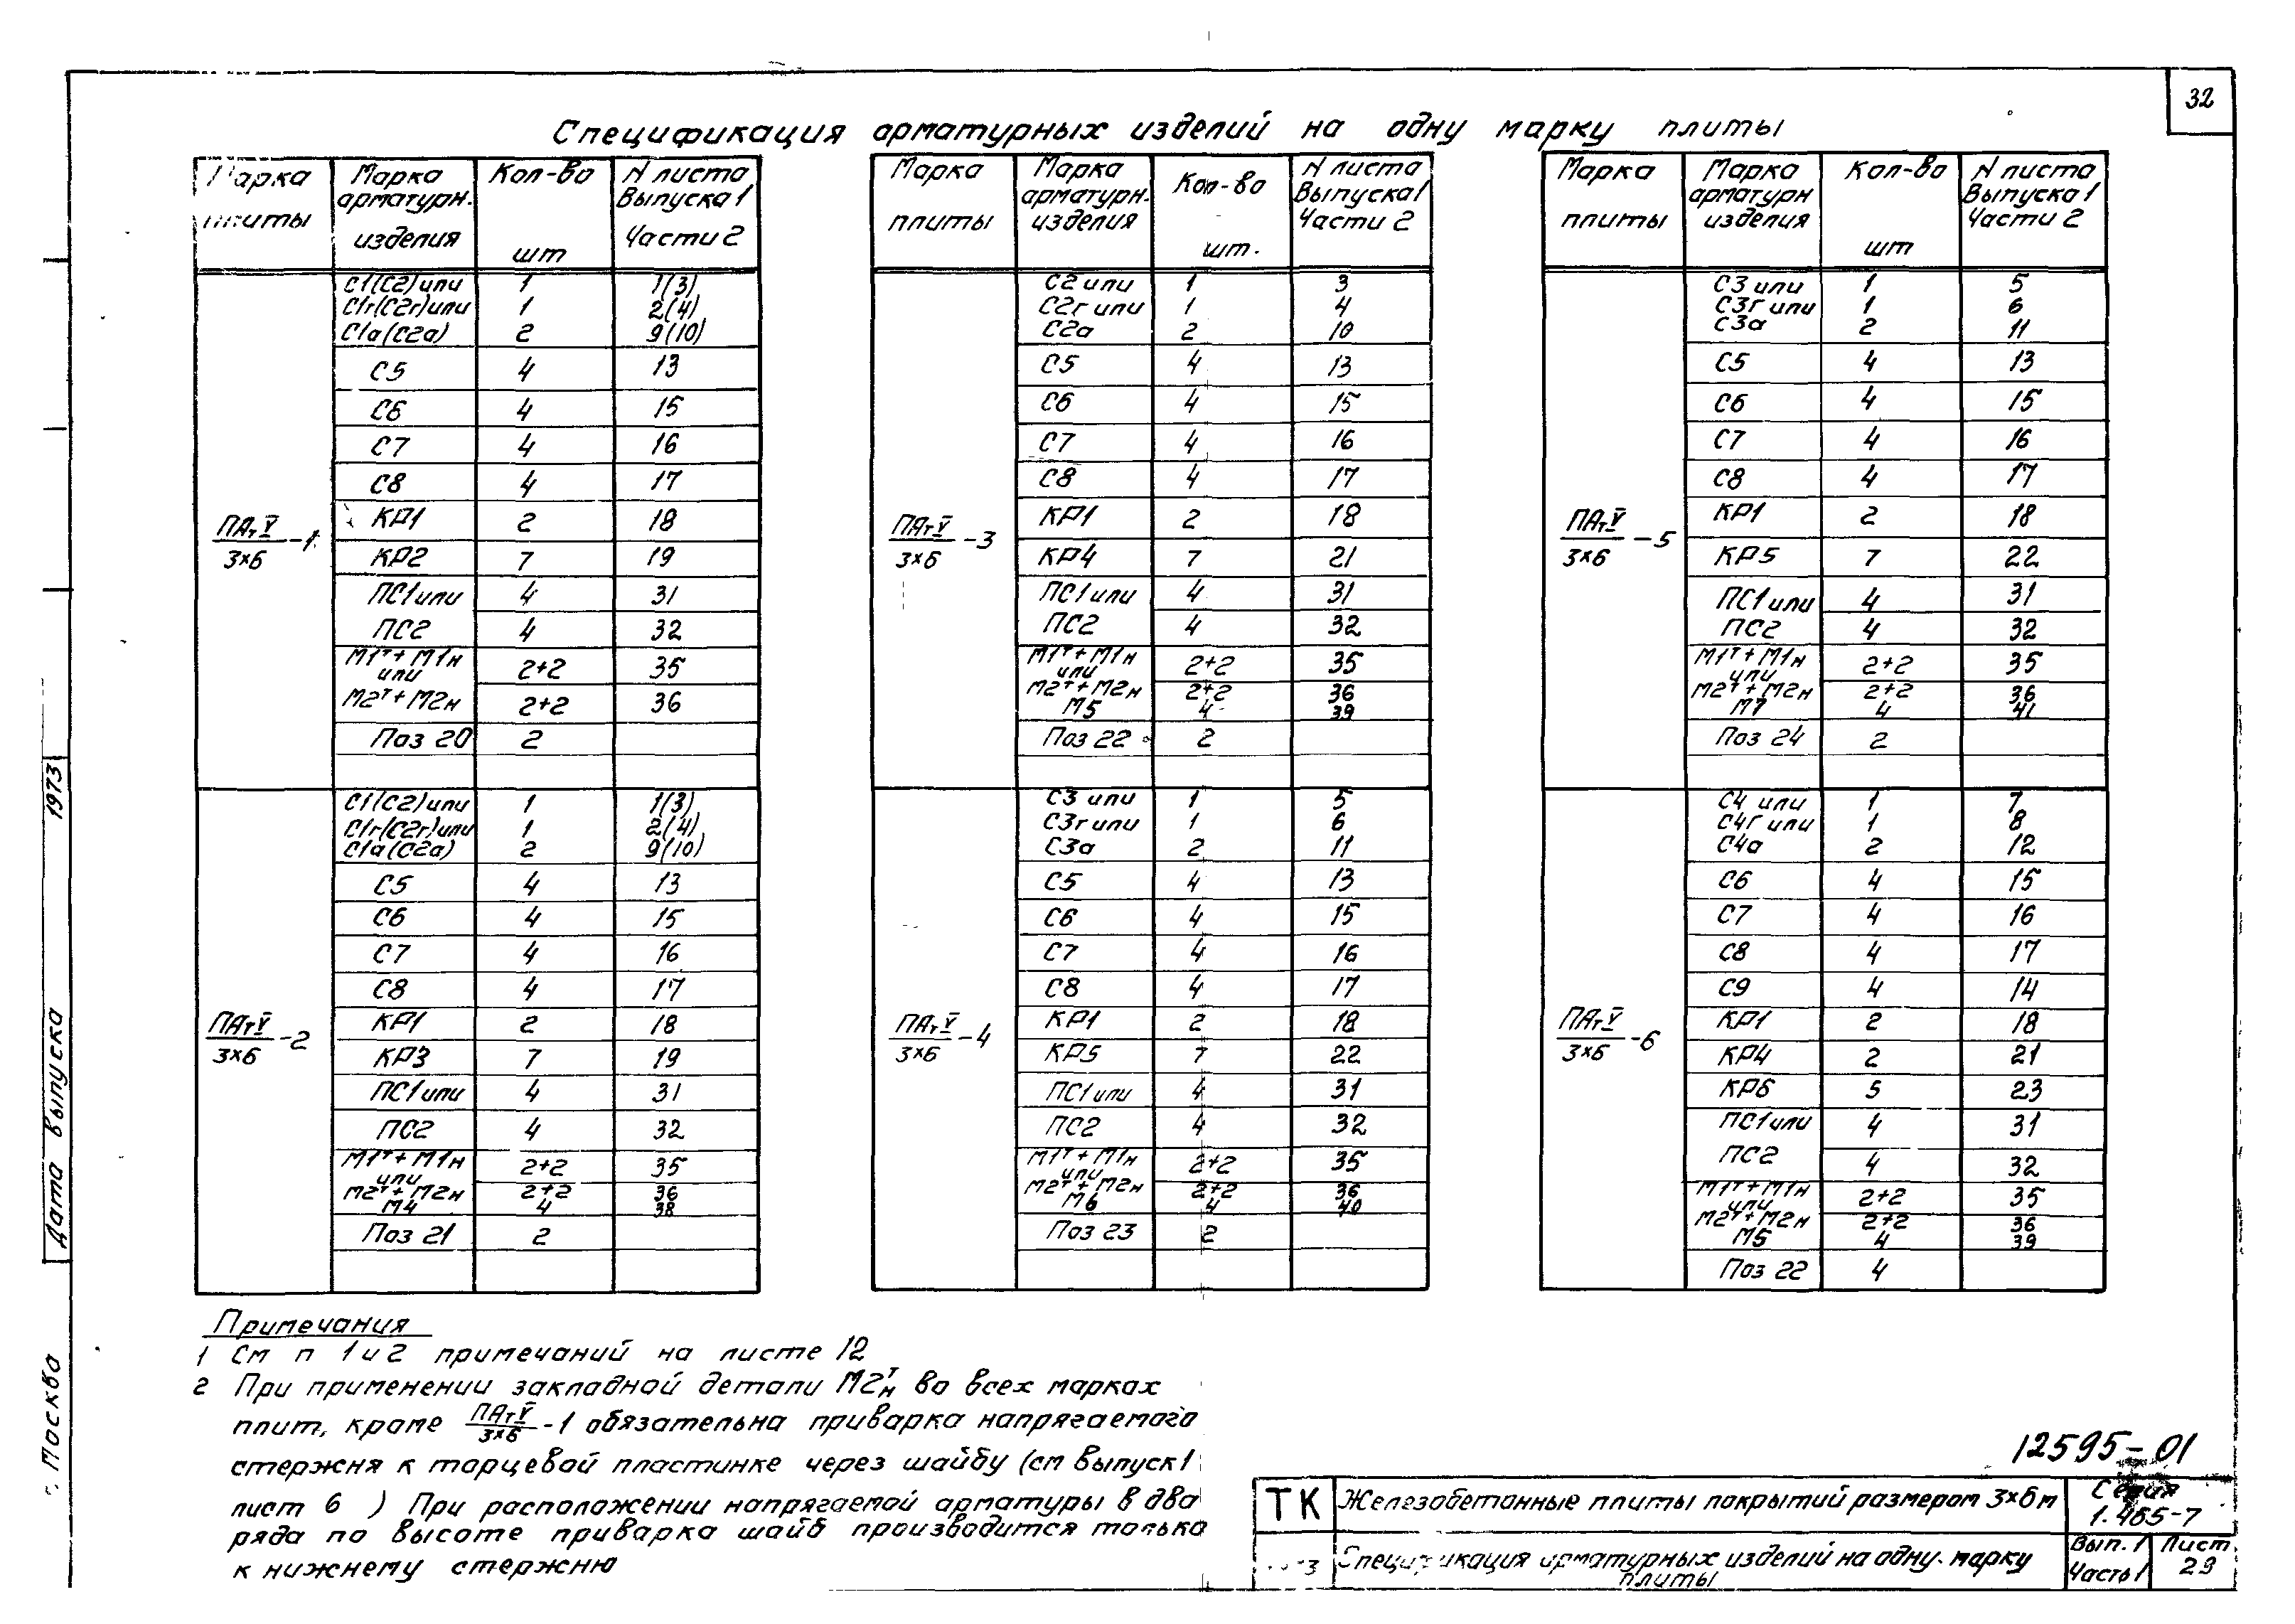 32
Спецификация арматурных изделий на одну марку плиты
Марка плиты | Марка арматурн. изделия | Кол-во шт | N листа Выпуска 1 Части 2
ПАтV/3×6 -1
С1(С2) или | 1 | 1(3)
С1г(С2г) или | 1 | 2(4)
С1а(С2а) | 2 | 9(10)
С5 | 4 | 13
С6 | 4 | 15
С7 | 4 | 16
С8 | 4 | 17
КР1 | 2 | 18
КР2 | 7 | 19
ПС1 или | 4 | 31
ПС2 | 4 | 32
М1т + М1н | 2+2 | 35
или
М2т + М2н | 2+2 | 36
Поз 20 | 2
ПАтV/3×6 -2
С1(С2) или | 1 | 1(3)
С1г(С2г) или | 1 | 2(4)
С1а(С2а) | 2 | 9(10)
С5 | 4 | 13
С6 | 4 | 15
С7 | 4 | 16
С8 | 4 | 17
КР1 | 2 | 18
КР3 | 7 | 19
ПС1 или | 4 | 31
ПС2 | 4 | 32
М1т + М1н | 2+2 | 35
или
М2т + М2н | 2+2 | 36
М4 | 4 | 38
Поз 21 | 2
Марка плиты | Марка арматурн. изделия | Кол-во шт. | N листа Выпуска 1 Части 2
ПАтV/3×6 -3
С2 или | 1 | 3
С2г или | 1 | 4
С2а | 2 | 10
С5 | 4 | 13
С6 | 4 | 15
С7 | 4 | 16
С8 | 4 | 17
КР1 | 2 | 18
КР4 | 7 | 21
ПС1 или | 4 | 31
ПС2 | 4 | 32
М1т + М1н | 2+2 | 35
или
М2т + М2н | 2+2 | 36
М5 | 4 | 39
Поз 22 | 2
ПАтV/3×6 -4
С3 или | 1 | 5
С3г или | 1 | 6
С3а | 2 | 11
С5 | 4 | 13
С6 | 4 | 15
С7 | 4 | 16
С8 | 4 | 17
КР1 | 2 | 18
КР5 | 7 | 22
ПС1 или | 4 | 31
ПС2 | 4 | 32
М1т + М1н | 2+2 | 35
или
М2т + М2н | 2+2 | 36
М6 | 4 | 40
Поз 23 | 2
Марка плиты | Марка арматурн изделия | Кол-во шт | N листа Выпуска 1 Части 2
ПАтV/3×6 -5
С3 или | 1 | 5
С3г или | 1 | 6
С3а | 2 | 11
С5 | 4 | 13
С6 | 4 | 15
С7 | 4 | 16
С8 | 4 | 17
КР1 | 2 | 18
КР5 | 7 | 22
ПС1 или | 4 | 31
ПС2 | 4 | 32
М1т + М1н | 2+2 | 35
или
М2т + М2н | 2+2 | 36
М7 | 4 | 41
Поз 24 | 2
ПАтV/3×6 -6
С4 или | 1 | 7
С4г или | 1 | 8
С4а | 2 | 12
С6 | 4 | 15
С7 | 4 | 16
С8 | 4 | 17
С9 | 4 | 14
КР1 | 2 | 18
КР4 | 2 | 21
КР6 | 5 | 23
ПС1 или | 4 | 31
ПС2 | 4 | 32
М1т + М1н | 2+2 | 35
или
М2т + М2н | 2+2 | 36
М5 | 4 | 39
Поз 22 | 4
Примечания
1 См п 1 и 2 примечаний на листе 12
2 При применении закладной детали М2тн во всех марках
плит, кроме ПАтV/3×6 -1 обязательна приварка напрягаемого
стержня к торцевой пластинке через шайбу (см Выпуск 1
лист 6 ) При расположении напрягаемой арматуры в два
ряда по высоте приварка шайб производится только
к нижнему стержню
12595-01
ТК
Железобетонные плиты покрытий размером 3×6 м
Серия
1.465-7
Спецификация арматурных изделий на одну марку
плиты
Вып. 1
Часть 1
Лист
29
1973
Дата выпуска
г. Москва